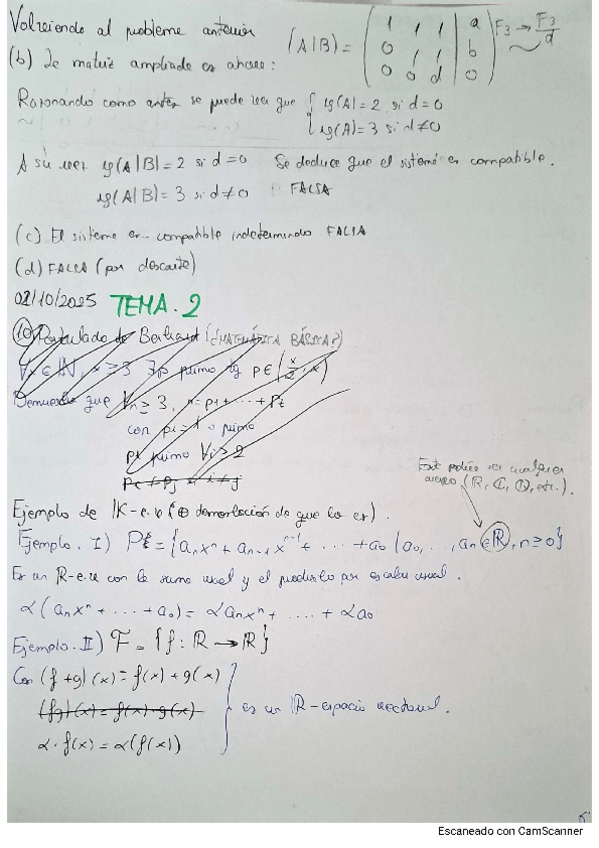 Volviendo al problema anterior
(b) La matriz ampliada es ahora: (A|B) = ( 1 1 1 | a
0 1 1 | b
0 0 d | 0 ) F3 → F3/d
Razonando como antes se puede ver que { rg(A) = 2 si d=0
rg(A) = 3 si d≠0
A su vez rg(A|B) = 2 si d=0 Se deduce que el sistema es compatible.
rg(A|B) = 3 si d≠0 FALSA
(c) El sistema es compatible indeterminado FALSA
(d) FALSA (por descarte)
02/10/2025 TEMA. 2
(10) Postulado de Bertrand (¿MATEMÁTICA BÁSICA?)
∀x ∈ ℕ, x ≥ 3 ∃p primo tq p∈(x/2, x)
Demuestra que ∀n ≥ 3, n = p1 + ... + pt
con p1 = 1 o primo
pi primo ∀i ≥ 2
pi ≠ pj i ≠ j
Este podría ser cualquier
cuerpo (ℝ, ℂ, ℚ, etc.).
Ejemplo de K-e.v (⊕ demostración de que lo es).
Ejemplo. I) = {anx^n + an-1x^n-1 + ... + a0 | a0, ..., an ∈ ℝ, n ≥ 0}
Es un ℝ-e.v con la suma usual y el producto por escalar usual.
α(anx^n + .... + a0) = αanx^n + .... + αa0
Ejemplo. II) F = {f: ℝ → ℝ}
Con (f+g)(x) = f(x) + g(x)
(fg)(x) = f(x)·g(x) } es un ℝ-espacio vectorial.
α·f(x) = α(f(x))
Escaneado con CamScanner